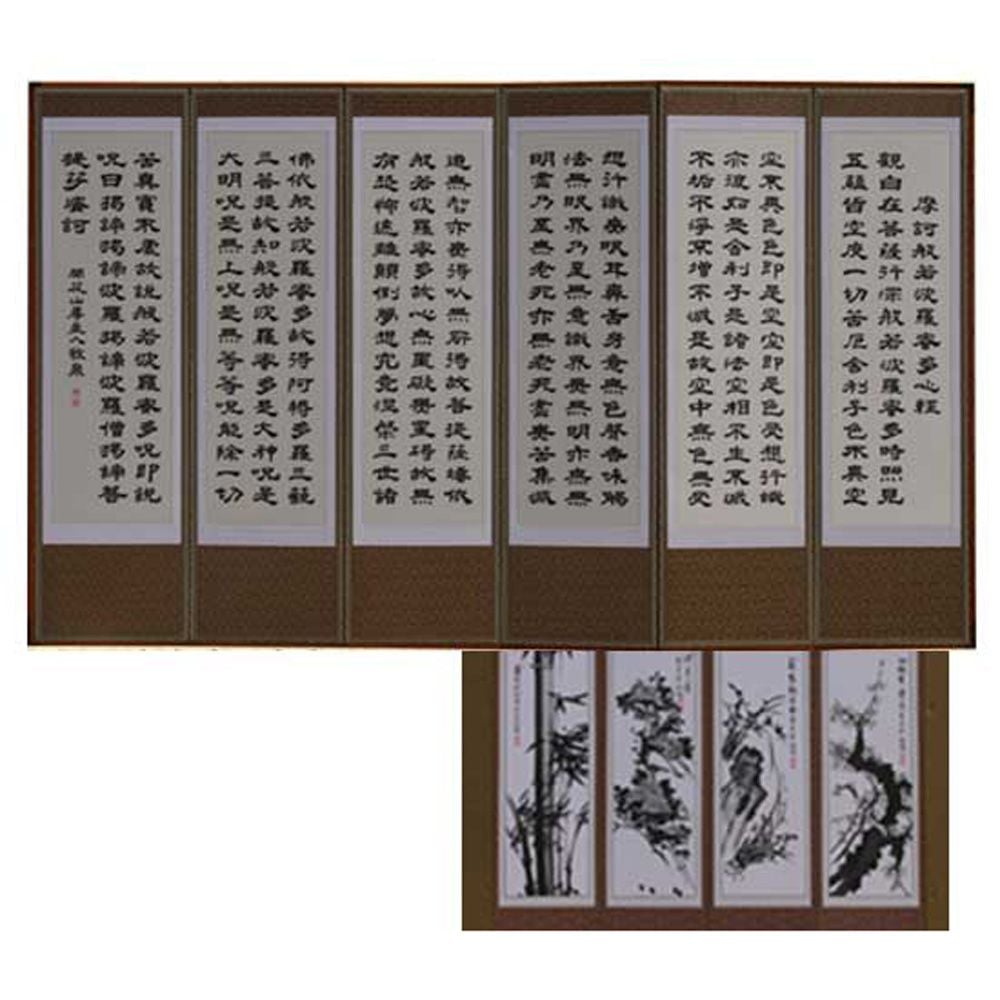 摩訶般若波羅蜜多心經
觀自在菩薩行深般若波羅蜜多時照見
五蘊皆空度一切苦厄舍利子色不異空
空不異色色即是空空即是色受想行識
亦復如是舍利子是諸法空相不生不滅
不垢不淨不增不減是故空中無色無受
想行識無眼耳鼻舌身意無色聲香味觸
法無眼界乃至無意識界無無明亦無無
明盡乃至無老死亦無老死盡無苦集滅
道無智亦無得以無所得故菩提薩埵依
般若波羅蜜多故心無罣礙無罣礙故無
有恐怖遠離顛倒夢想究竟涅槃三世諸
佛依般若波羅蜜多故得阿耨多羅三藐
三菩提故知般若波羅蜜多是大神呪是
大明呪是無上呪是無等等呪能除一切
苦真實不虛故說般若波羅蜜多呪即說
呪曰揭諦揭諦波羅揭諦波羅僧揭諦菩
提莎婆訶